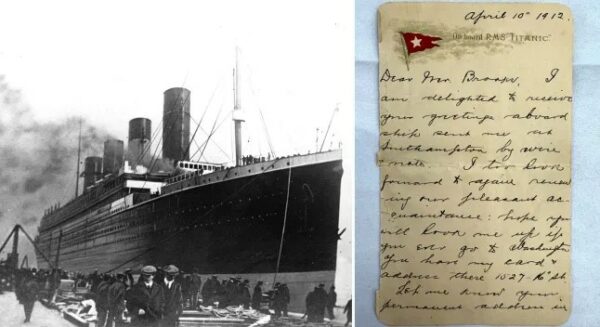 April 10th 1912.
On board R.M.S. "TITANIC"
Dear Mr. I
am delighted to receive
your greetings aboard
ship sent me at
Southampton by wire
& note. I too look
forward to again renew
ing our pleasant ac-
quaintance: hope you
will look me up if
you ever go to Washington
You have my card &
address there 1527-16th St.
Let me know your
permanent address